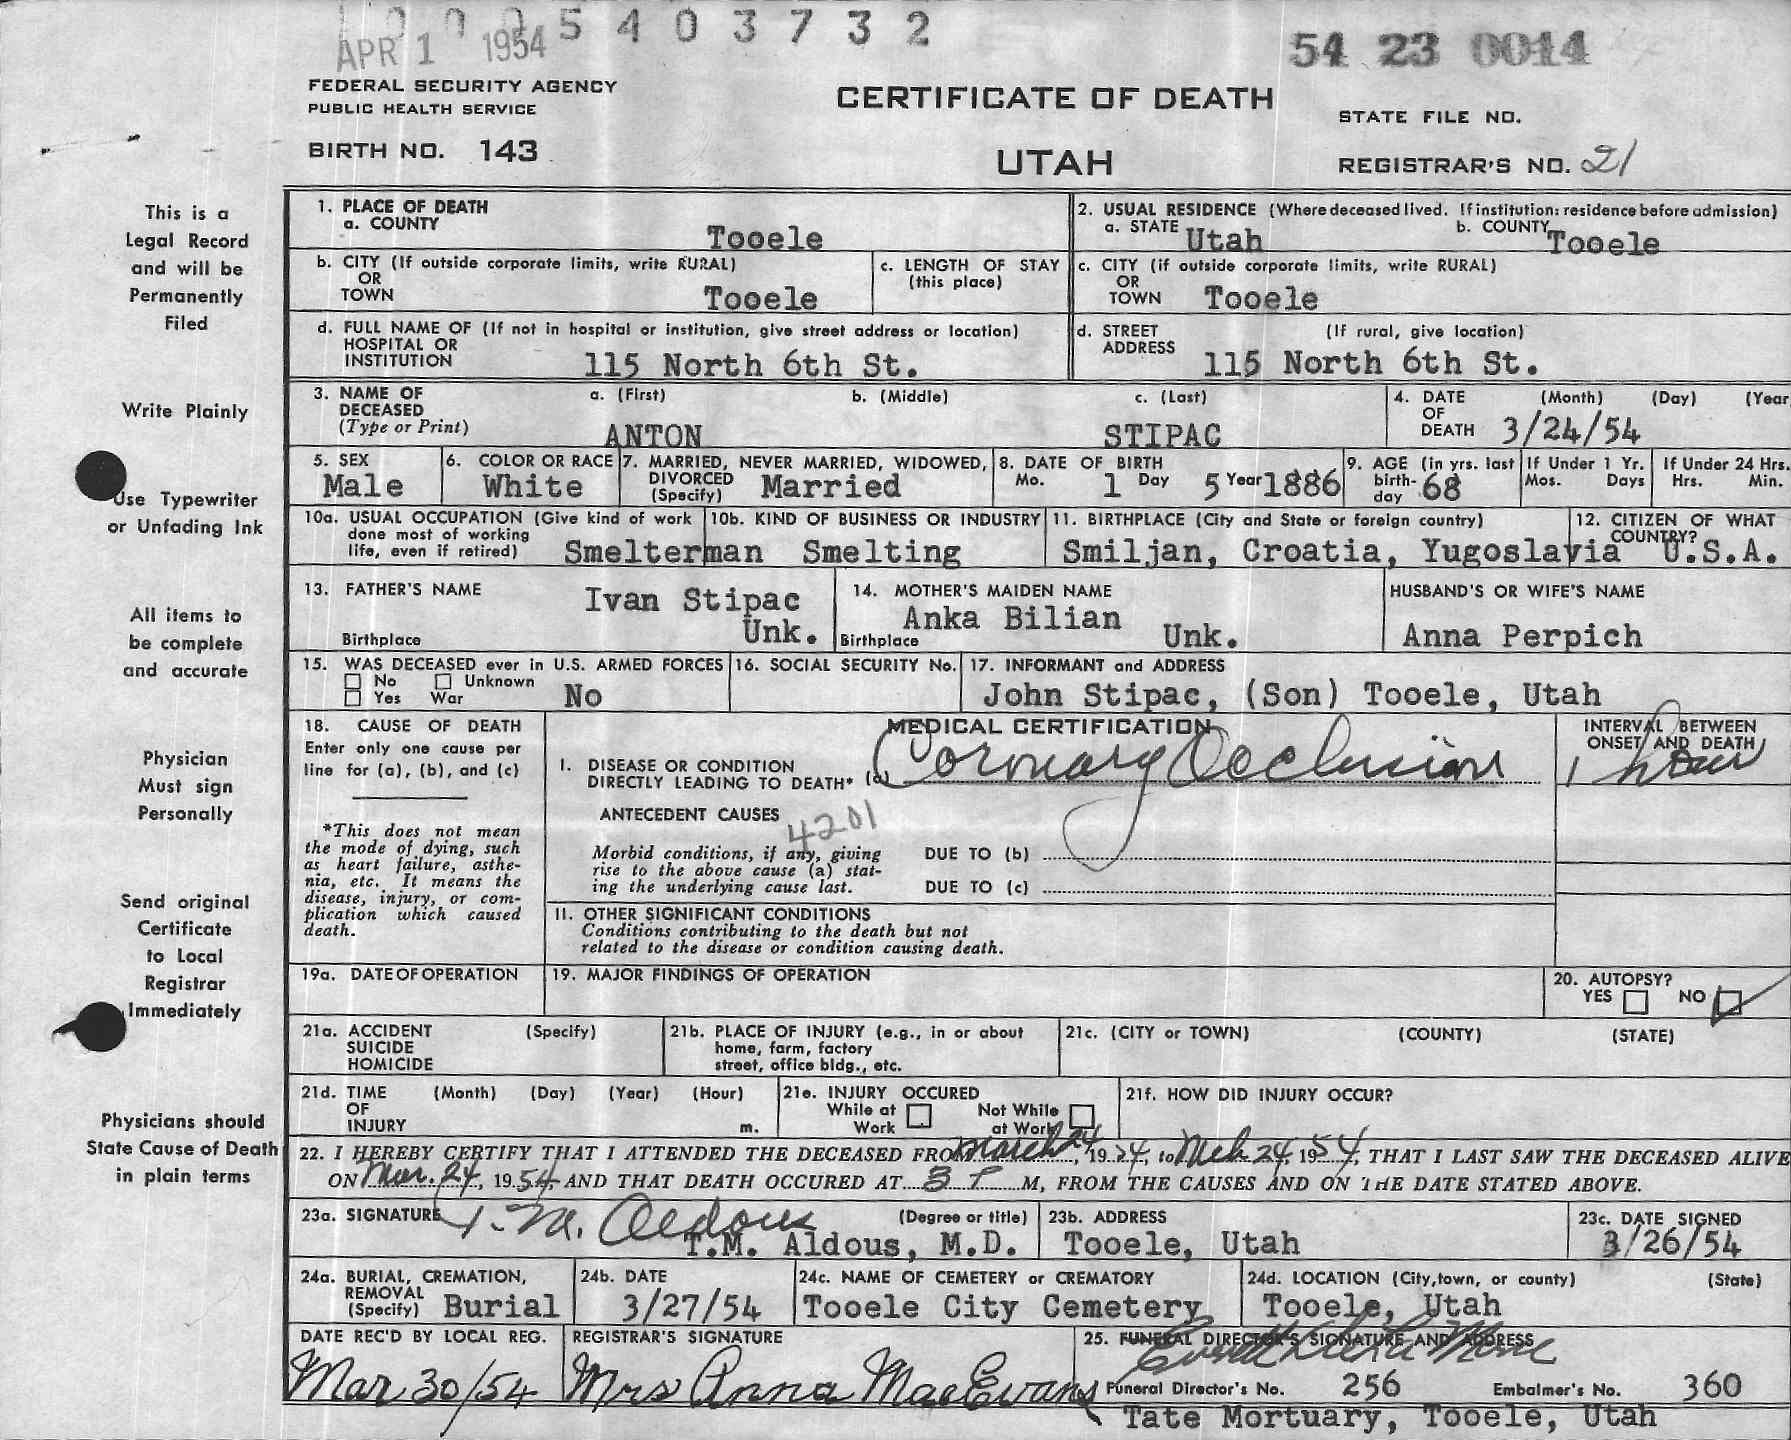 0 0 0 5 4 0 3 7 3 2
APR 1 1954
54 23 0014
FEDERAL SECURITY AGENCY
PUBLIC HEALTH SERVICE
CERTIFICATE OF DEATH
STATE FILE NO.
BIRTH NO. 143
UTAH
REGISTRAR'S NO. 21
This is a
Legal Record
and will be
Permanently
Filed
Write Plainly
Use Typewriter
or Unfading Ink
All items to
be complete
and accurate
Physician
Must sign
Personally
Send original
Certificate
to Local
Registrar
Immediately
Physicians should
State Cause of Death
in plain terms
1. PLACE OF DEATH
a. COUNTY Tooele
2. USUAL RESIDENCE (Where deceased lived. If institution: residence before admission)
a. STATE Utah b. COUNTY Tooele
b. CITY (If outside corporate limits, write RURAL)
OR
TOWN Tooele
c. LENGTH OF STAY
(this place)
c. CITY (if outside corporate limits, write RURAL)
OR
TOWN Tooele
d. FULL NAME OF (If not in hospital or institution, give street address or location)
HOSPITAL OR
INSTITUTION 115 North 6th St.
d. STREET (If rural, give location)
ADDRESS 115 North 6th St.
3. NAME OF a. (First) b. (Middle) c. (Last)
DECEASED
(Type or Print) ANTON STIPAC
4. DATE (Month) (Day) (Year
OF
DEATH 3/24/54
5. SEX
Male
6. COLOR OR RACE
White
7. MARRIED, NEVER MARRIED, WIDOWED,
DIVORCED
(Specify) Married
8. DATE OF BIRTH
Mo. 1 Day 5 Year 1886
9. AGE (in yrs. last
birth-
day 68
If Under 1 Yr.
Mos. Days
If Under 24 Hrs.
Hrs. Min.
10a. USUAL OCCUPATION (Give kind of work
done most of working
life, even if retired) Smelterman
10b. KIND OF BUSINESS OR INDUSTRY
Smelting
11. BIRTHPLACE (City and State or foreign country)
Smiljan, Croatia, Yugoslavia
12. CITIZEN OF WHAT
COUNTRY? U.S.A.
13. FATHER'S NAME Ivan Stipac
Birthplace Unk.
14. MOTHER'S MAIDEN NAME
Anka Bilian
Birthplace Unk.
HUSBAND'S OR WIFE'S NAME
Anna Perpich
15. WAS DECEASED ever in U.S. ARMED FORCES
No Unknown
Yes War No
16. SOCIAL SECURITY No.
17. INFORMANT and ADDRESS
John Stipac, (Son) Tooele, Utah
18. CAUSE OF DEATH
Enter only one cause per
line for (a), (b), and (c)
*This does not mean
the mode of dying, such
as heart failure, asthe-
nia, etc. It means the
disease, injury, or com-
plication which caused
death.
MEDICAL CERTIFICATION
I. DISEASE OR CONDITION
DIRECTLY LEADING TO DEATH* (a) Coronary Occlusion
INTERVAL BETWEEN
ONSET AND DEATH
1 hour
ANTECEDENT CAUSES
4201
Morbid conditions, if any, giving
rise to the above cause (a) stat-
ing the underlying cause last.
DUE TO (b)
DUE TO (c)
II. OTHER SIGNIFICANT CONDITIONS
Conditions contributing to the death but not
related to the disease or condition causing death.
19a. DATE OF OPERATION
19. MAJOR FINDINGS OF OPERATION
20. AUTOPSY?
YES NO
21a. ACCIDENT (Specify)
SUICIDE
HOMICIDE
21b. PLACE OF INJURY (e.g., in or about
home, farm, factory
street, office bldg., etc.
21c. (CITY or TOWN) (COUNTY) (STATE)
21d. TIME (Month) (Day) (Year) (Hour)
OF
INJURY m.
21e. INJURY OCCURED
While at Not While
Work at Work
21f. HOW DID INJURY OCCUR?
22. I HEREBY CERTIFY THAT I ATTENDED THE DECEASED FROM March 24, 1954, to Mch 24, 1954, THAT I LAST SAW THE DECEASED ALIVE
ON Mar. 24, 1954, AND THAT DEATH OCCURED AT 3 P M, FROM THE CAUSES AND ON THE DATE STATED ABOVE.
23a. SIGNATURE T. M. Aldous (Degree or title)
T.M. Aldous, M.D.
23b. ADDRESS
Tooele, Utah
23c. DATE SIGNED
3/26/54
24a. BURIAL, CREMATION,
REMOVAL
(Specify) Burial
24b. DATE
3/27/54
24c. NAME OF CEMETERY or CREMATORY
Tooele City Cemetery
24d. LOCATION (City, town, or county) (State)
Tooele, Utah
DATE REC'D BY LOCAL REG.
Mar 30/54
REGISTRAR'S SIGNATURE
Mrs Anna MacEwans
25. FUNERAL DIRECTOR'S SIGNATURE AND ADDRESS
Funeral Director's No. 256 Embalmer's No. 360
Tate Mortuary, Tooele, Utah